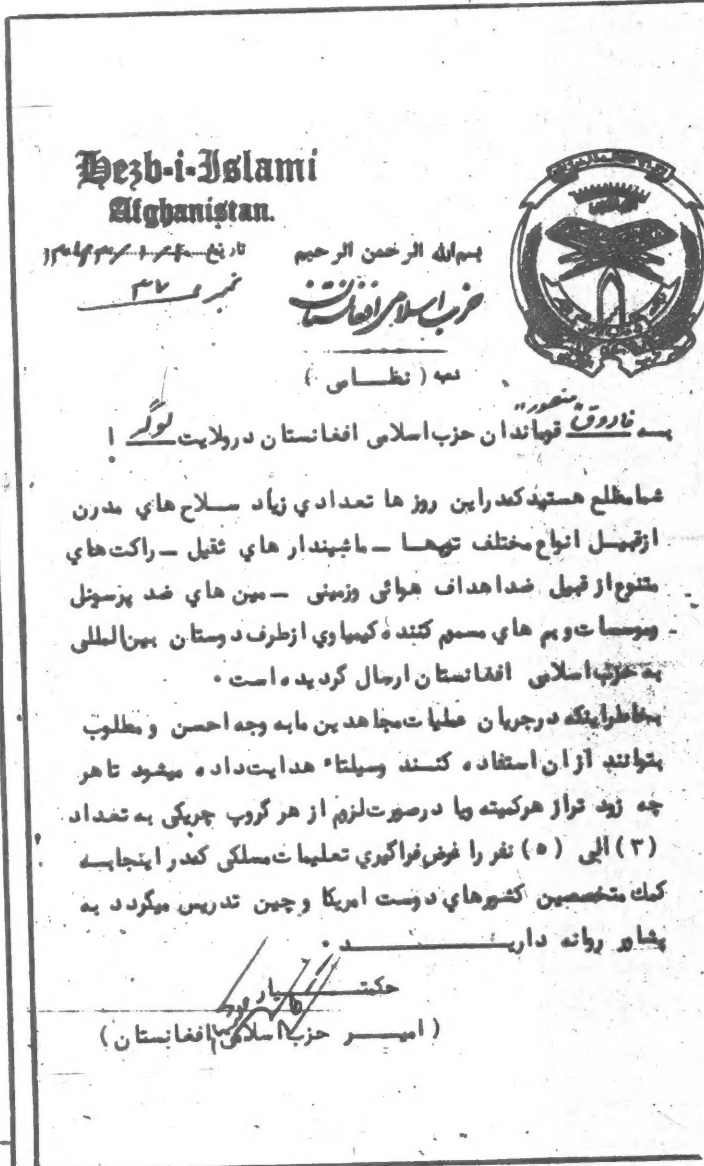 Hezb-i-Islami
Afghanistan.
تاریخ
نمبر ۳۷
بسم الله الرحمن الرحیم
حزب اسلامی افغانستان
( نظامی )
به فاروق "منصور" قوماندان حزب اسلامی افغانستان درولایت لوگر !
شما مطلع هستید که دراین روز ها تعدادي زیاد سلاح هاي مدرن
ازقبیل انواع مختلف توپها ــ ماشیندار هاي ثقیل ــ راکت هاي
متنوع از قبیل ضد اهداف هوائی وزمینی ــ مین هاي ضد پرسونل
وبم هاي مسموم کننده کیمیاوي ازطرف دوستان بین المللی
به حزب اسلامی افغانستان ارسال گردیده است .
بخاطراینکه درجریان عملیات مجاهدین مابه وجه احسن و مطلوب
بتوانند ازان استفاده کنند وسیلتاء هدایت داده میشود تاهر
چه زود تراز هرکمیته ویا درصورت لزوم از هر گروپ چریکی به تعداد
(۳) الی (۵) نفر را غرض فراگیري تعلیمات مسلکی که در اینجا به
کمك متخصصین کشورهاي دوست امریکا و چین تدریس میگردد به
پشاور روانه دارید .
حکمتیار
( امیر حزب اسلامی افغانستان )